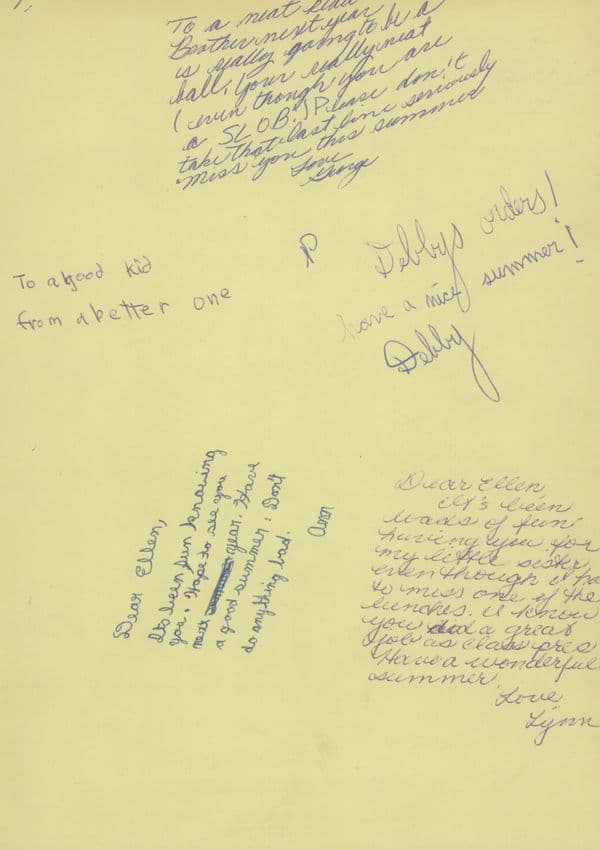 To a neat
Beather next year
is really going to be a
ball! Your really neat
(even though you are
a SLOB!) Please don't
take that last line seriously
Miss you this summer
Love
George
To a good kid
from a better one
Debbys orders!
have a nice summer!
Debby
Dear Ellen,
Its been fun knowing
you. Hope to see you
next year. Have
a good summer. Don't
do anything bad.
Ann
Dear Ellen
It's been
loads of fun
having you for
my little sister
even though I ha
to miss one of the
lunches. I know
you did a great
job as class pres
Have a wonderful
summer.
Love
Lynn